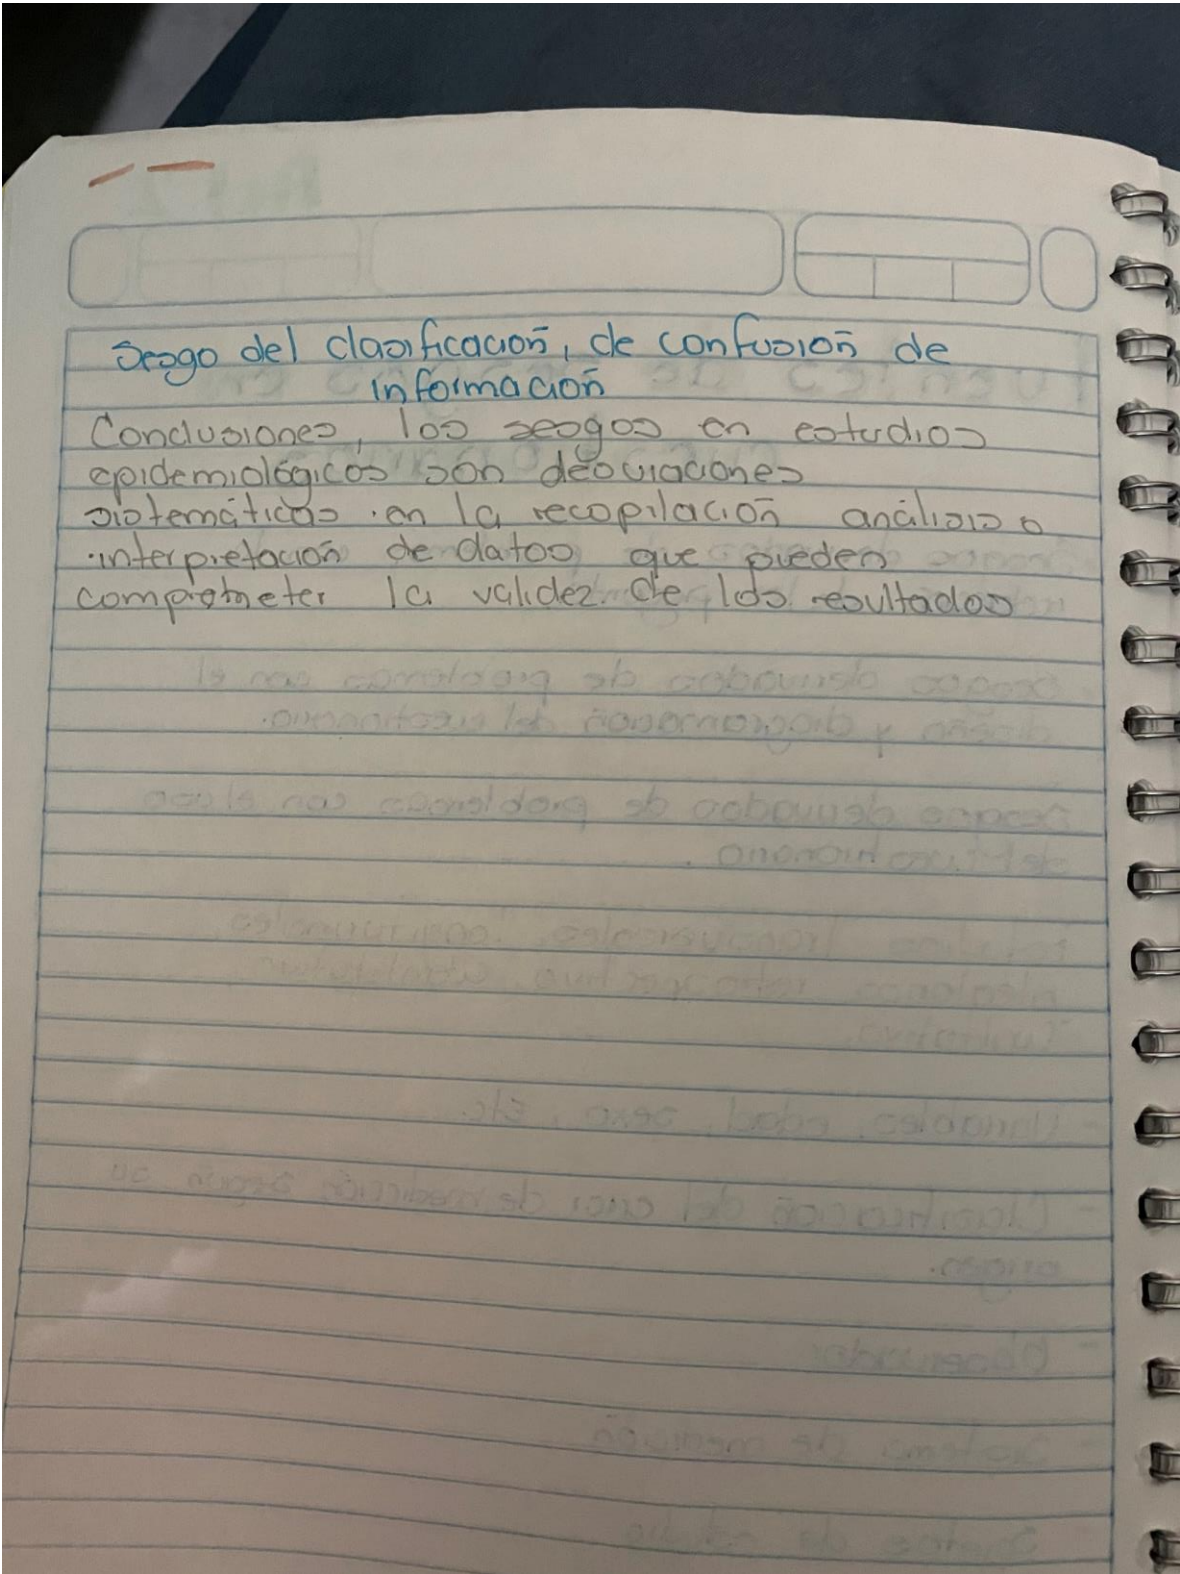 Sesgo del clasificación, de confusión de
información
Conclusiones, los sesgos en estudios
epidemiológicos son desviaciones
sistemáticas en la recopilación análisis o
interpretación de datos que pueden
comprometer la validez de los resultados